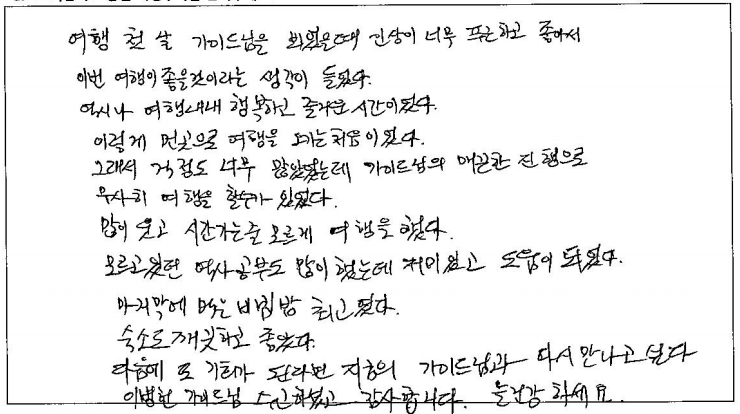 여행 첫 날 가이드님을 뵈었을때 인상이 너무 푸근하고 좋아서
이번 여행이 좋을것이라는 생각이 들었다.
역시나 여행내내 행복하고 즐거운 시간이었다.
이렇게 먼곳으로 여행을 처음이었다.
그래서 걱정도 너무 많았었는데 가이드님의 매끈한 진행으로
무사히 여행을 할수가 있었다.
많이 웃고 시간가는줄 모르게 여행을 했다.
모르고있던 역사공부도 많이 했는데 재미있고 도움이 되었다.
마지막에 먹은 비빔밥 최고였다.
숙소도 깨끗하고 좋았다.
다음에 또 기회가 된다면 가이드님과 다시만나고 싶다
이병헌 가이드님 수고하셨고 감사합니다. 늘건강하세요.